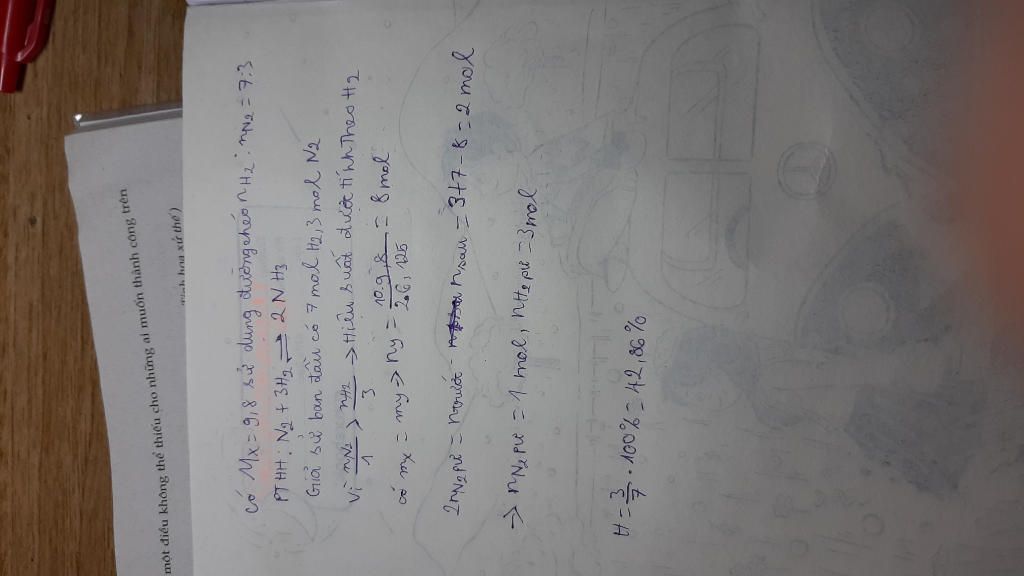 một điều không thể thiếu cho những ai muốn thành công trên
có Mx = 9,8 sử dụng đường chéo nH2 : nN2 = 7:3
PTHH: N2 + 3H2 ⇌ 2NH3
Giả sử ban đầu có 7 mol H2, 3 mol N2
Vì nN2/1 > nH2/3 -> Hiệu suất được tính theo H2
có mx = my => ny = 10.9,8/2.6,125 = 8 mol
2nN2pư = ntrước - nsau = 3+7-8 = 2 mol
-> nN2pư = 1 mol, nH2pư = 3mol
H = 3/7 . 100% = 42,86%